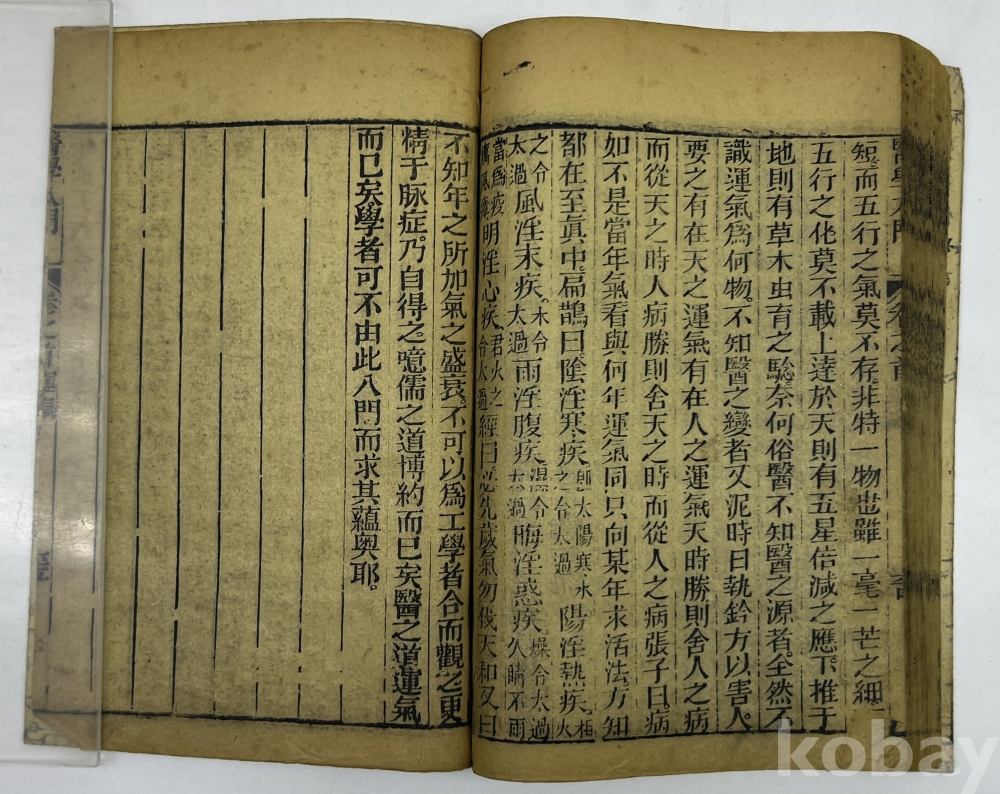 醫學入門 卷之首
短而五行之氣莫不存非特一物也雖一毫一芒之細
五行之化莫不載上達於天則有五星倍減之應下推于
地則有草木虫育之驗奈何俗醫不知醫之源者全然不
識運氣爲何物不知醫之變者又泥時日執鈐方以害人
要之有在天之運氣有在人之運氣天時勝則舍人之病
而從天之時人病勝則舍天之時而從人之病張子曰病
如不是當年氣看與何年運氣同只向某年求活法方知
都在至眞中扁鵲曰陰淫寒疾 卽太陽寒水之令太過 陽淫熱疾 相火
之令太過 風淫末疾 木令太過 雨淫腹疾 濕令太過 晦淫惑疾 燥令太過久晴不雨
當爲疫癘風瘴 明淫心疾 君火之令太過 經曰必先歲氣勿伐天和又曰
不知年之所加氣之盛衰不可以爲工學者合而觀之更
精于脉症乃自得之噫儒之道博約而已矣醫之道運氣
而已矣學者可不由此八門而求其蘊奧耶
醫學入門 卷之首
kobay